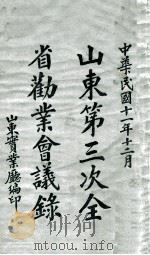 中華民國十一年十二月
山東第三次全
省勸業會議錄
山東實業廳編印
mtoou.info